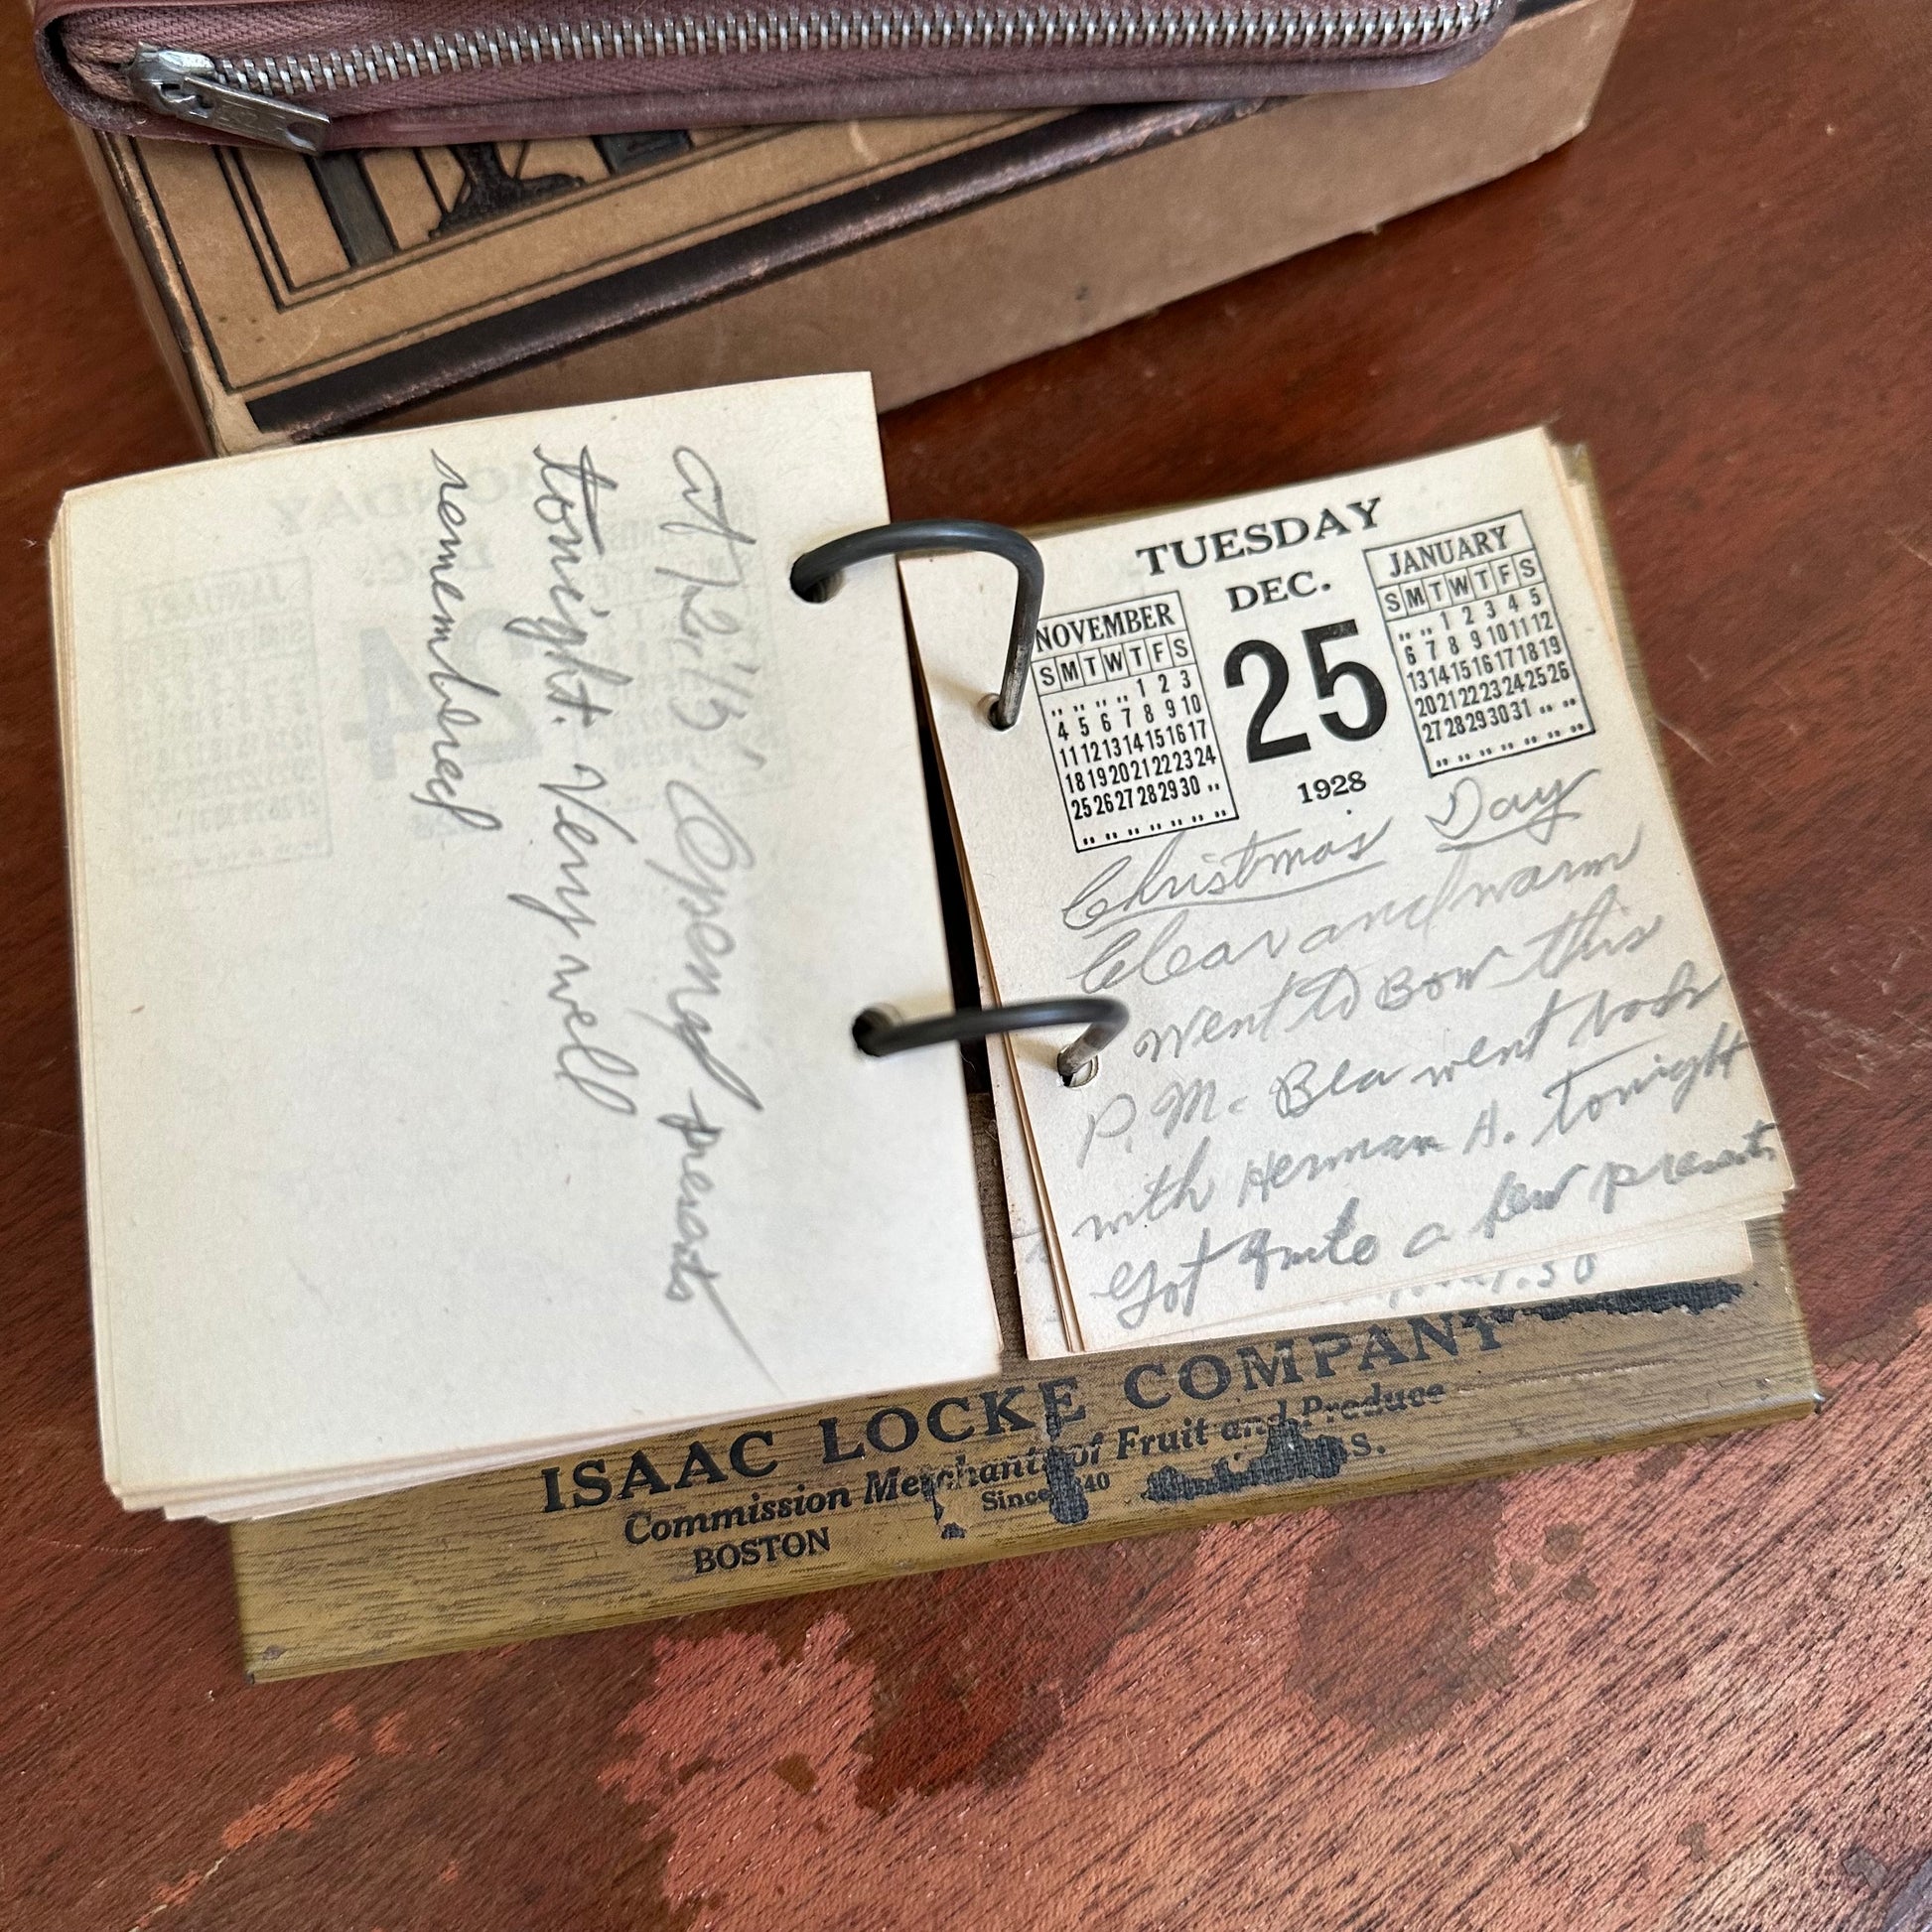 at R.'s. Opened presents
tonight. Very well
remembered
TUESDAY
DEC.
25
1928
NOVEMBER
S M T W T F S
,, ,, ,, ,, 1 2 3
4 5 6 7 8 9 10
11 12 13 14 15 16 17
18 19 20 21 22 23 24
25 26 27 28 29 30 ,,
,, ,, ,, ,, ,, ,, ,,
JANUARY
S M T W T F S
,, ,, 1 2 3 4 5
6 7 8 9 10 11 12
13 14 15 16 17 18 19
20 21 22 23 24 25 26
27 28 29 30 31 ,, ,,
,, ,, ,, ,, ,, ,, ,,
Christmas Day
Clear and warm
Went to Bow this
P.M. Bea went back
with Herman A. tonight
Got quite a few presents
.50
ISAAC LOCKE COMPANY
Commission Merchants of Fruit and Produce
Since 40
BOSTON S.